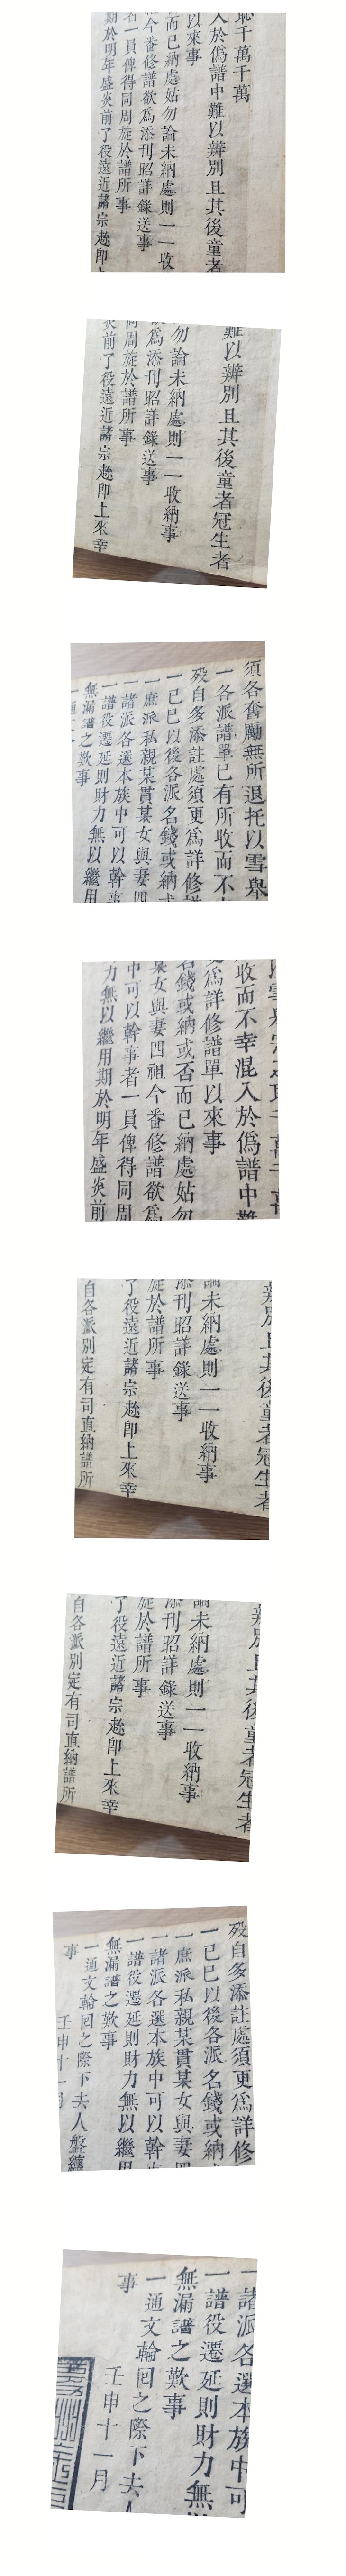 恥千萬千萬
入於偽譜中難以辨別且其後童者
以來事
而已納處姑勿論未納處則一一收
今番修譜欲爲添刊昭詳錄送事
者一員俾得同周旋於譜所事
期於明年盛炎前了役遠近諸宗趂卽上
難以辨別且其後童者冠生者
勿論未納處則一一收納事
爲添刊昭詳錄送事
同周旋於譜所事
炎前了役遠近諸宗趂卽上來幸
須各奮勵無所退托以雪舉
一各派譜單已有所收而不
歿自多添註處須更爲詳修
一己巳以後各派名錢或納
一庶派私親某貫某女與妻四
一諸派各選本族中可以幹事
一譜役遷延則財力無以繼用
無漏譜之歎事
一通
收而不幸混入於偽譜中難
爲詳修譜單以來事
名錢或納或否而已納處姑勿
某女與妻四祖今番修譜欲爲
中可以幹事者一員俾得同周
力無以繼用期於明年盛炎前
辨別且其後童者冠生者
論未納處則一一收納事
添刊昭詳錄送事
旋於譜所事
了役遠近諸宗趂卽上來幸
自各派別定有司直納譜所
辨別且其後童者冠生者
論未納處則一一收納事
添刊昭詳錄送事
旋於譜所事
了役遠近諸宗趂卽上來幸
自各派別定有司直納譜所
歿自多添註處須更爲詳修
一己巳以後各派名錢或納
一庶派私親某貫某女與妻四
一諸派各選本族中可以幹事
一譜役遷延則財力無以繼用
無漏譜之歎事
一通文輪回之際下去人盤纏
事
壬申十一月
一諸派各選本族中可
一譜役遷延則財力無
無漏譜之歎事
一通文輪回之際下去人
事
壬申十一月